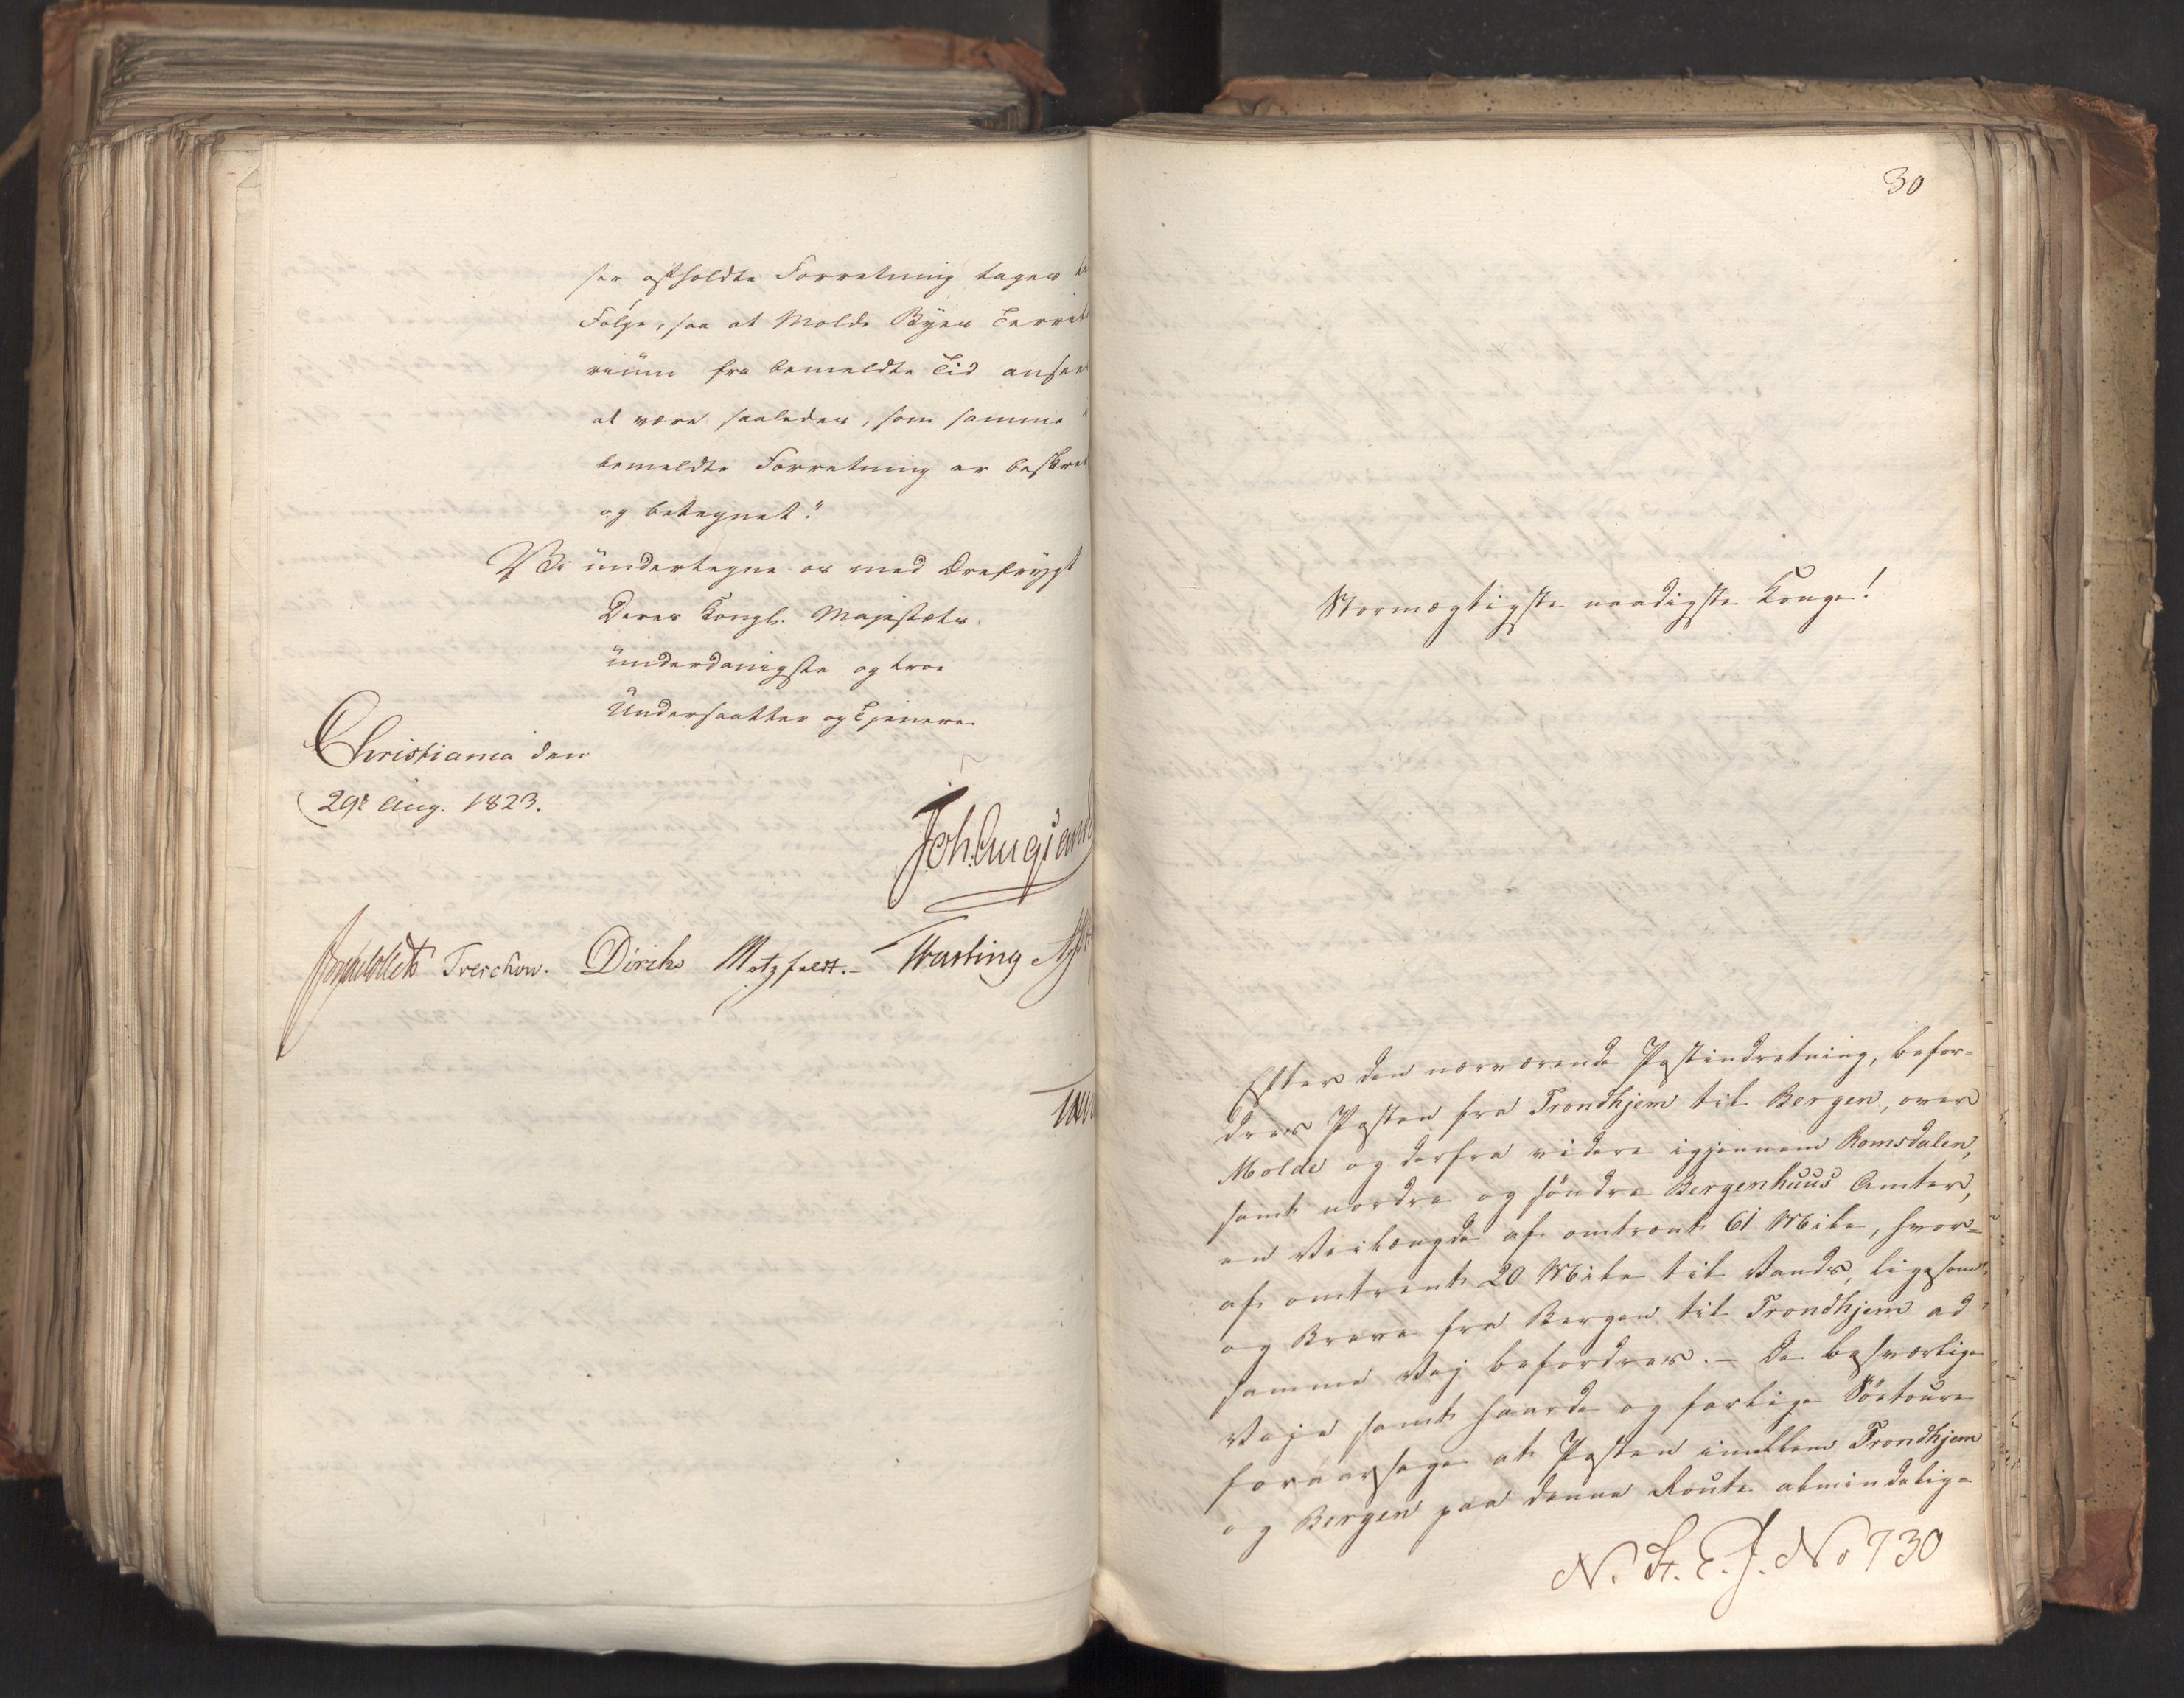 ser afholdte Forretning tages
Følge, saa at Molde Byes Territ
rium fra bemeldte Tid anser
at være saaledes, som samme
bemeldte Forretning er beskrev
og betegnet."
Vi undertegne os med Ærefrygt
Deres Kongl. Majestæts
underdanigste og troe
Undersaatter og Tjenere
Christiania den
29de Aug. 1823.
Joh. Aug. Sand
Treschow. Diriks Motzfeldt. Fasting
30
Stormægtigste naadigste Konge!
Efter den nærværende Postindretning, befor-
dres Posten fra Trondhjem til Bergen, over
Molde og derfra videre igjennem Romsdalen,
samt nordre og søndre Bergenhuus Amter,
en Veilængde af omtrent 61 Mile, hvor-
af omtrent 20 Mile til Vands, ligesom
og Breve fra Bergen til Trondhjem ad
samme Vej befordres. - De besværlige
Veje samt haarde og farlige Söetoure
foraarsage at Posten imellem Trondhjem
og Bergen paa denne Route almindelig-
N. St. E. J. No 730